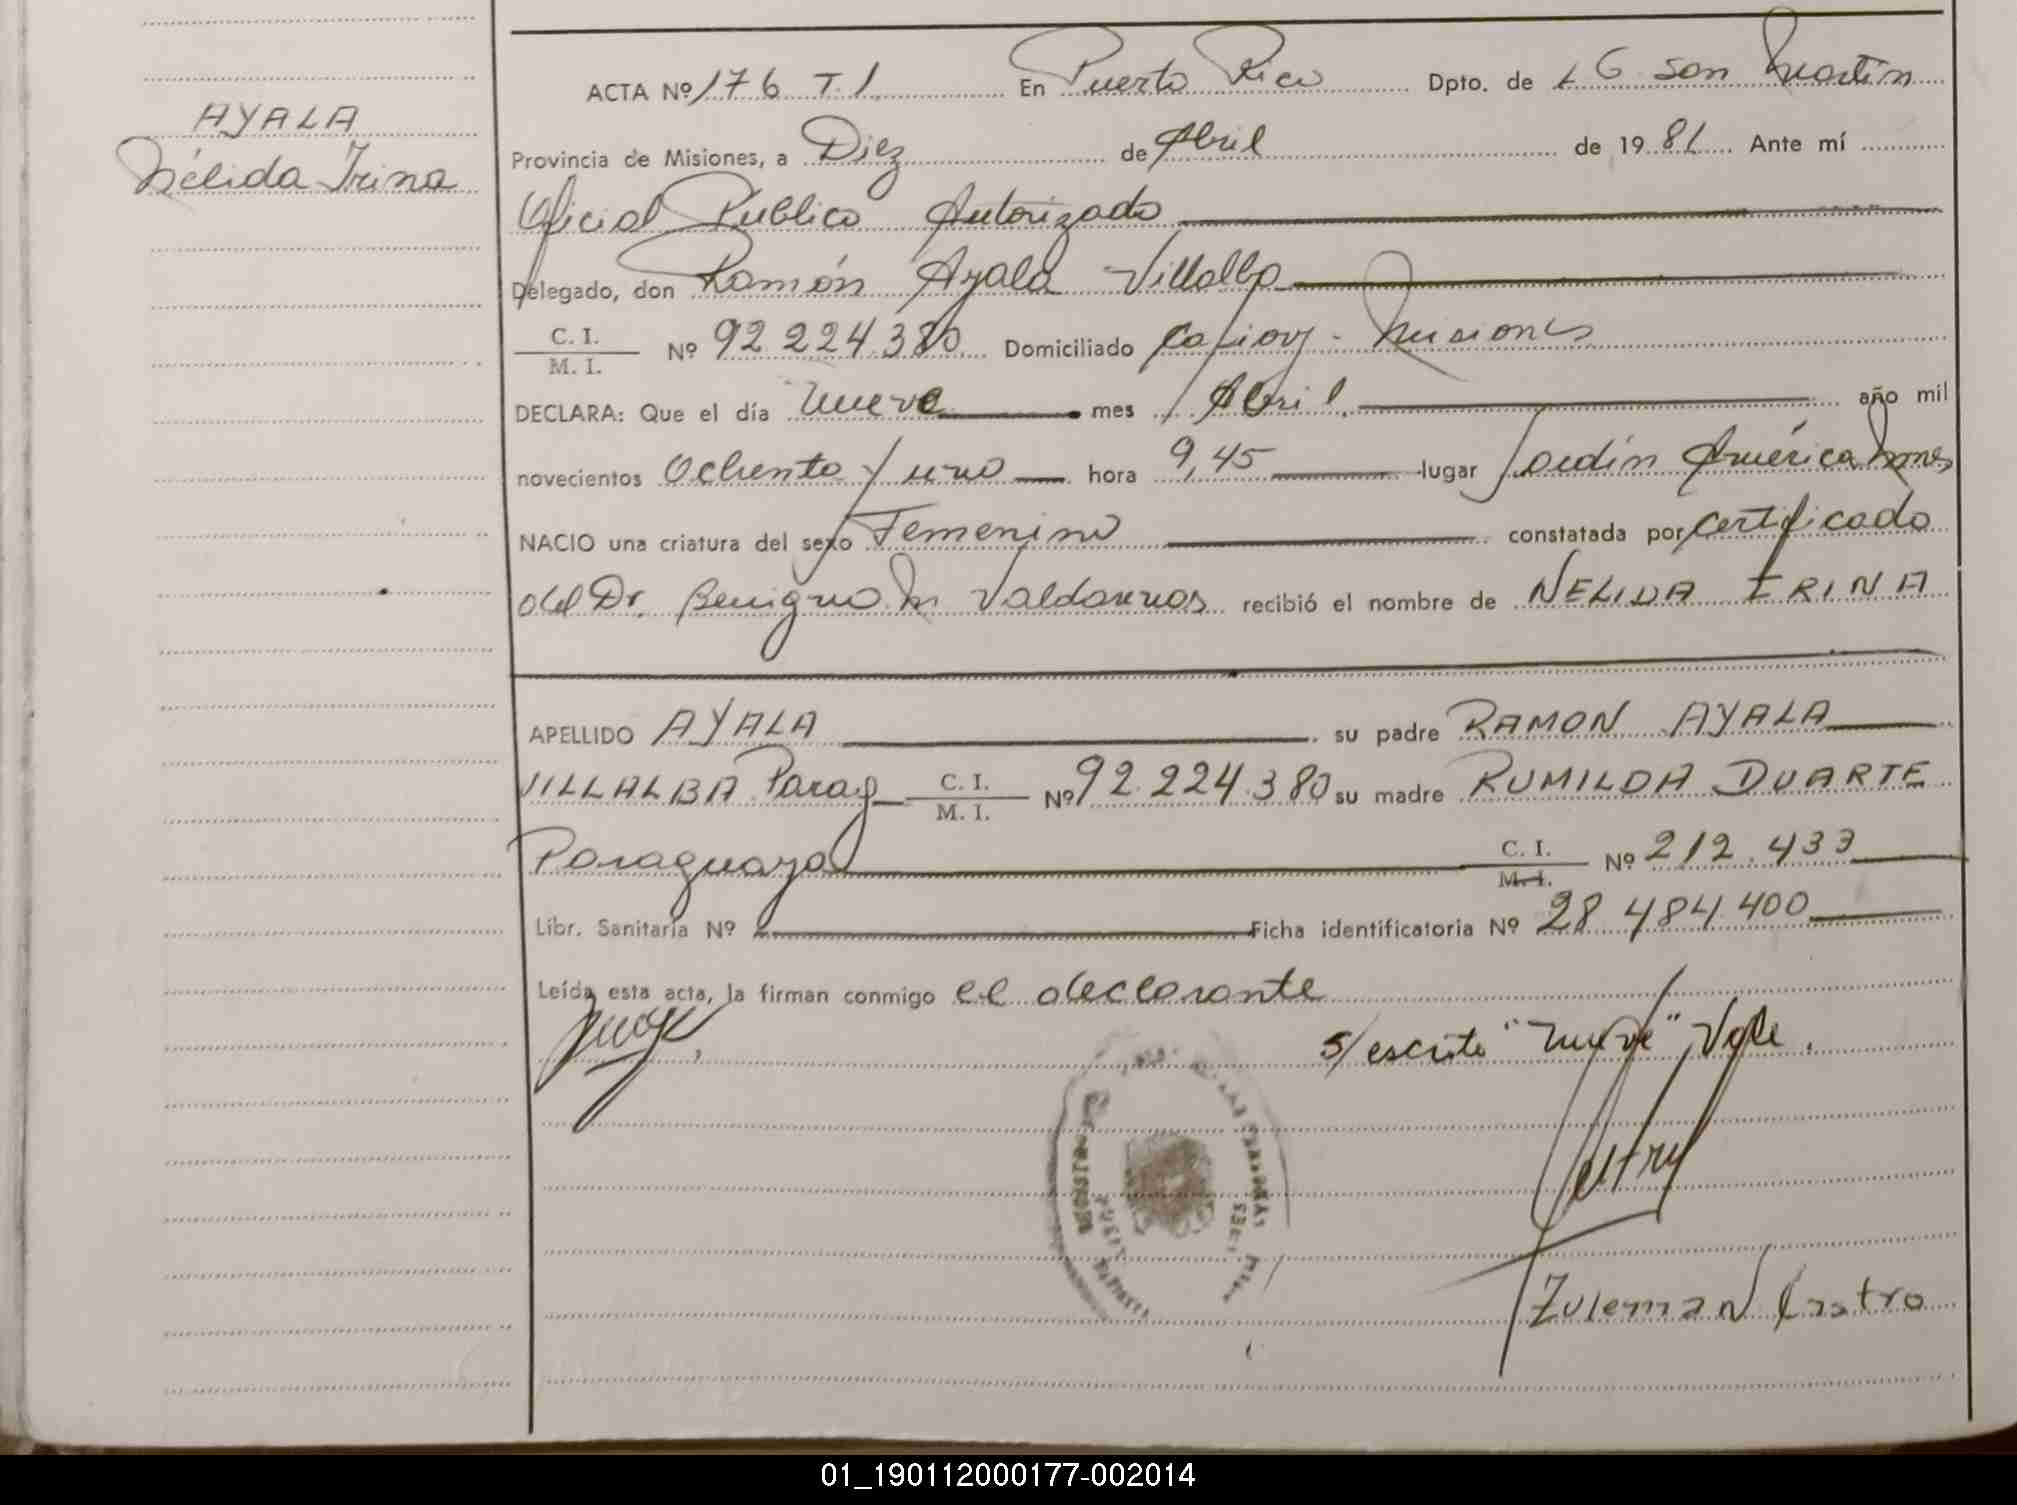 AYALA
Nélida Irina
ACTA Nº 176 T.1 En Puerto Rico Dpto. de L G San Martín
Provincia de Misiones, a Diez de Abril de 1981 Ante mí
Oficial Publico Autorizado
Delegado, don Ramón Ayala Villalba
C. I.
M. I.
Nº 92 224.380 Domiciliado Capiovy - Misiones
DECLARA: Que el día nueve mes Abril. año mil
novecientos Ochenta y uno hora 9,45 lugar Jardín América Mnes
NACIO una criatura del sexo Femenino constatada por certificado
del Dr. Benigno M Valdovinos recibió el nombre de NELIDA IRINA
APELLIDO AYALA su padre RAMON AYALA
VILLALBA Parag C. I.
M. I.
Nº 92.224.380 su madre RUMILDA DUARTE
Paraguaya C. I.
M. I.
Nº 212.433
Libr. Sanitaria Nº Ficha identificatoria Nº 28.484.400
Leída esta acta, la firman conmigo el declarante
s/escrito "nueve" Vale.
Zulema N Castro
01_190112000177-002014